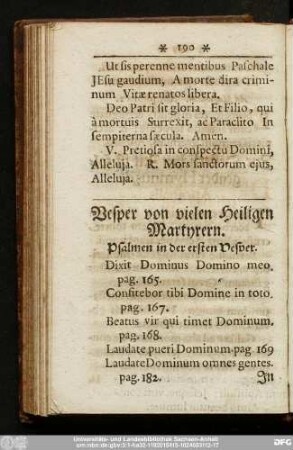 * 190 *
Ut sis perenne mentibus Paschale
JEsu gaudium, A morte dira crimi-
num Vitæ renatos libera.
Deo Patri sit gloria, Et Filio, qui
à mortuis Surrexit, ac Paraclito In
sempiterna sæcula. Amen.
V. Pretiosa in conspectu Domini,
Alleluja. R. Mors sanctorum ejus,
Alleluja.
Vesper von vielen Heiligen
Martyrern.
Psalmen in der ersten Vesper.
Dixit Dominus Domino meo.
pag. 165.
Confitebor tibi Domine in toto.
pag. 167.
Beatus vir qui timet Dominum.
pag. 168.
Laudate pueri Dominum. pag. 169
Laudate Dominum omnes gentes.
pag. 182. In
Universitäts- und Landesbibliothek Sachsen-Anhalt
DFG